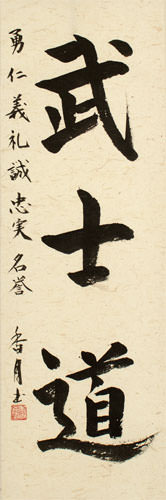 武士道
勇仁義礼誠忠実名誉
香月書